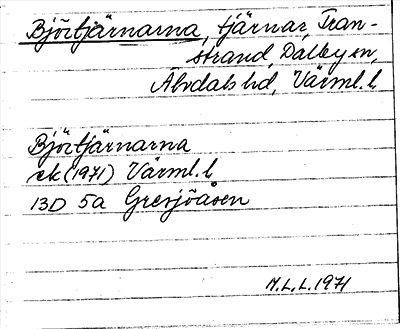 Björtjärnarna, tjärnar, Tran-
strand, Dalby sn,
Älvdals hd, Värml. l.
Björtjärnarna
ek (1971) Värml. l
13D 5a Gresjöåsen
M.L.L. 1971